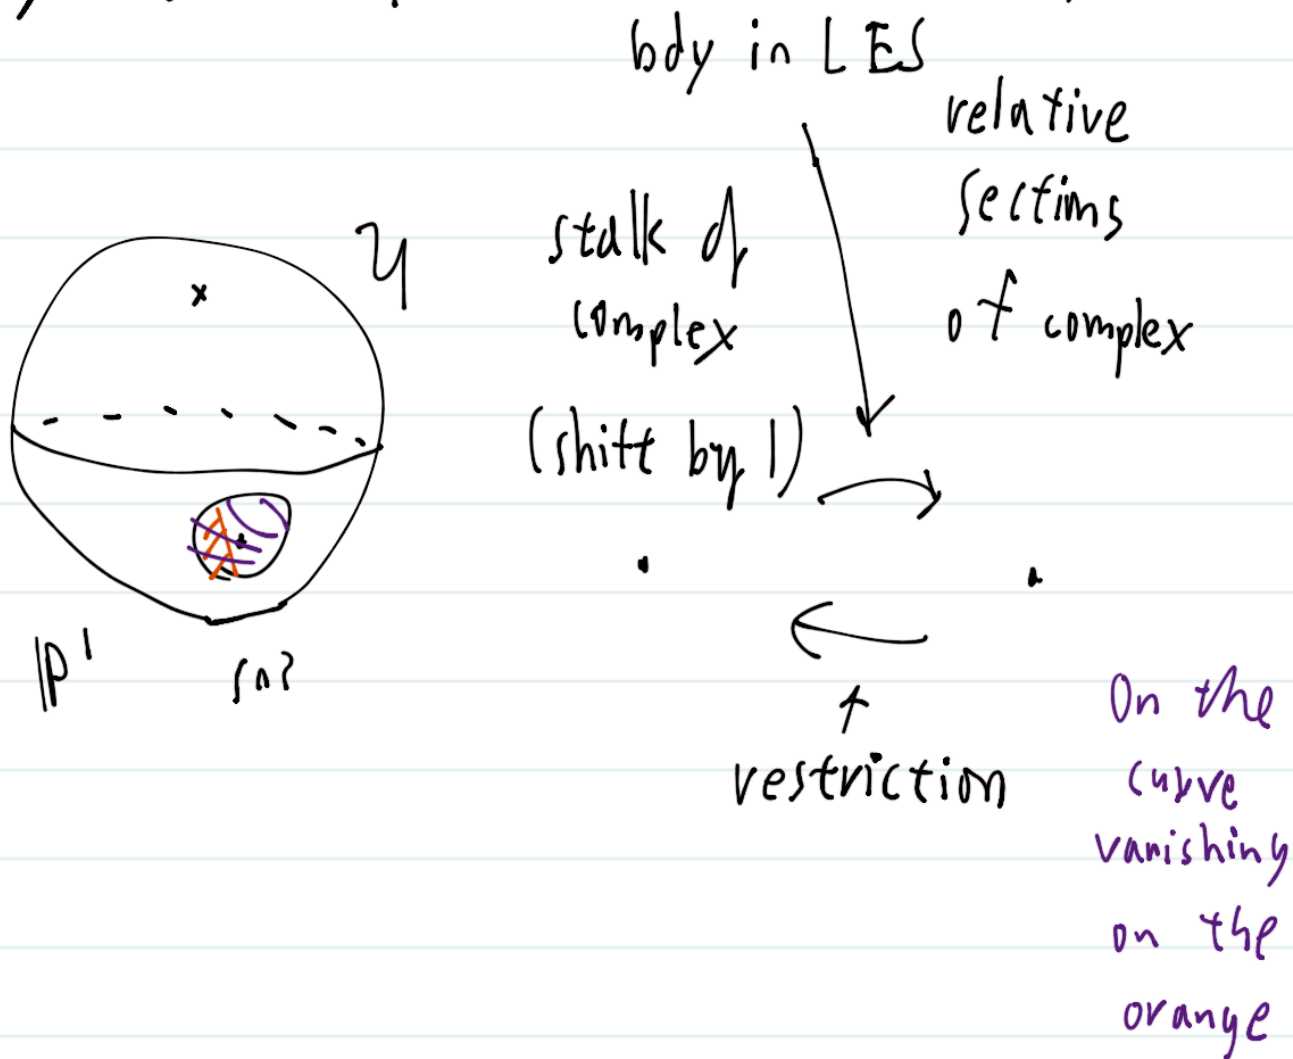 bdy in LES
relative
sections
of complex
stalk of
complex
(shift by 1)
x
y
P¹
restriction
On the
curve
vanishing
on the
orange